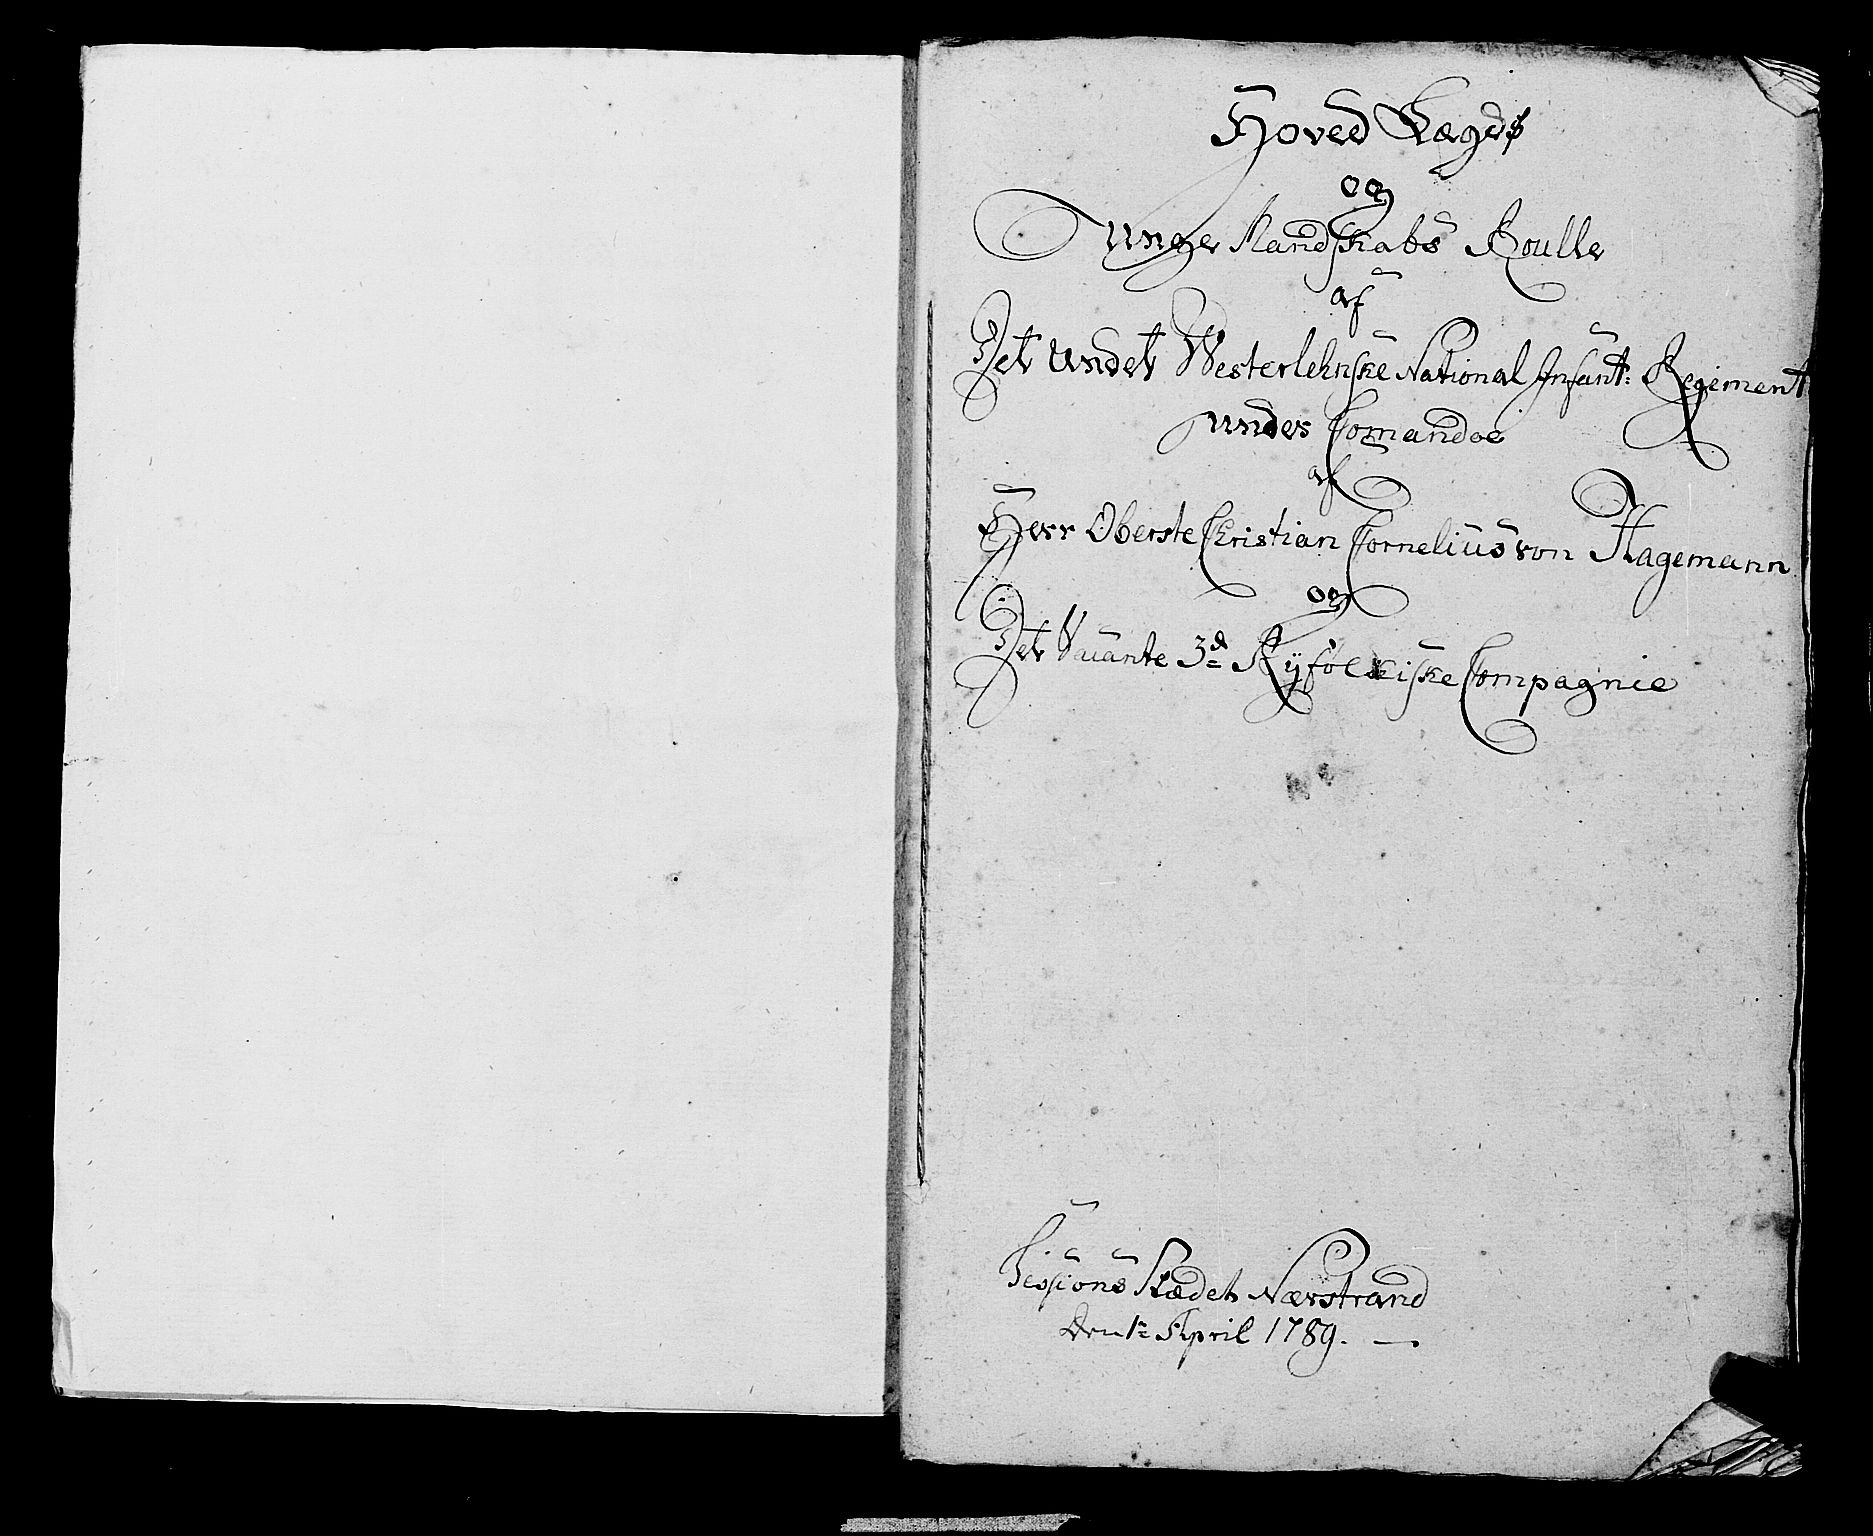 Hoved Lægds
og
Unge Mandskabs Roulle
af
Det Andet Westerlehnske National Infant: Regiment
under Comandoe
af
Herr Oberste Christian Cornelius von Hagemann
og
Det Vacante 3d Ryfølkiske Compagnie
Sessions Stædet Nærstrand
den 1te April 1789.